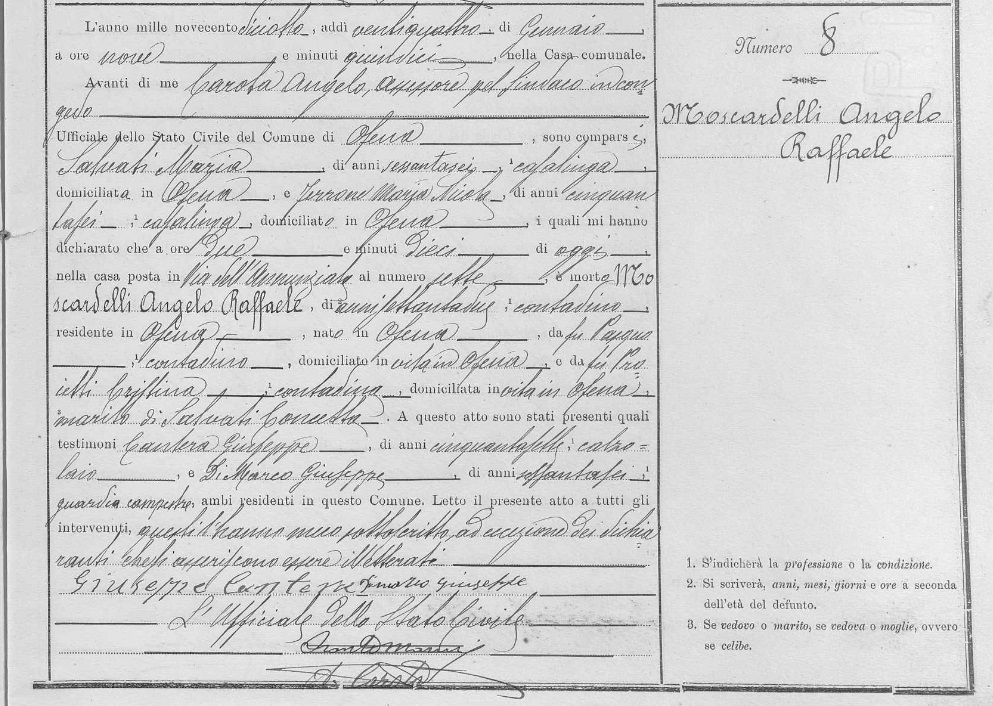 L'anno mille novecento diciotto, addì ventiquattro, di Gennaio,
a ore nove e minuti quindici, nella Casa comunale.
Avanti di me Carosa Angelo, assessore pel Sindaco in con
gedo
Ufficiale dello Stato Civile del Comune di Ofena, sono comparsi,
Salvati Maria, di anni sessantasei, casalinga,
domiciliata in Ofena, e Terrone Maria Nicola, di anni cinquan
tasei casalinga, domiciliato in Ofena, i quali mi hanno
dichiarato che a ore due e minuti dieci di oggi,
nella casa posta in Via dell'Annunziata al numero sette, è morto Mo
scardelli Angelo Raffaele, di anni settantadue contadino,
residente in Ofena, nato in Ofena, da fu
contadino, domiciliato in vita in Ofena e da fu Pro
ietti Cristina contadina, domiciliata in vita in Ofena,
marito di Salvati Concetta. A questo atto sono stati presenti quali
testimoni Cantera Giuseppe, di anni cinquantasette calzo=
laio, e Di Marco Giuseppe, di anni
guardia campestre, ambi residenti in questo Comune. Letto il presente atto a tutti gli
intervenuti, questi l'hanno meco sottoscritto, ad eccezione dei dichia
ranti che asseriscono essere illetterati
Giuseppe Cantera Dimarco Giuseppe
L'Ufficiale dello Stato Civile
A. Carosa
Numero 8
Moscardelli Angelo
Raffaele
1. S'indicherà la professione o la condizione.
2. Si scriverà, anni, mesi, giorni e ore a seconda
dell'età del defunto.
3. Se vedovo o marito, se vedova o moglie, ovvero
se celibe.